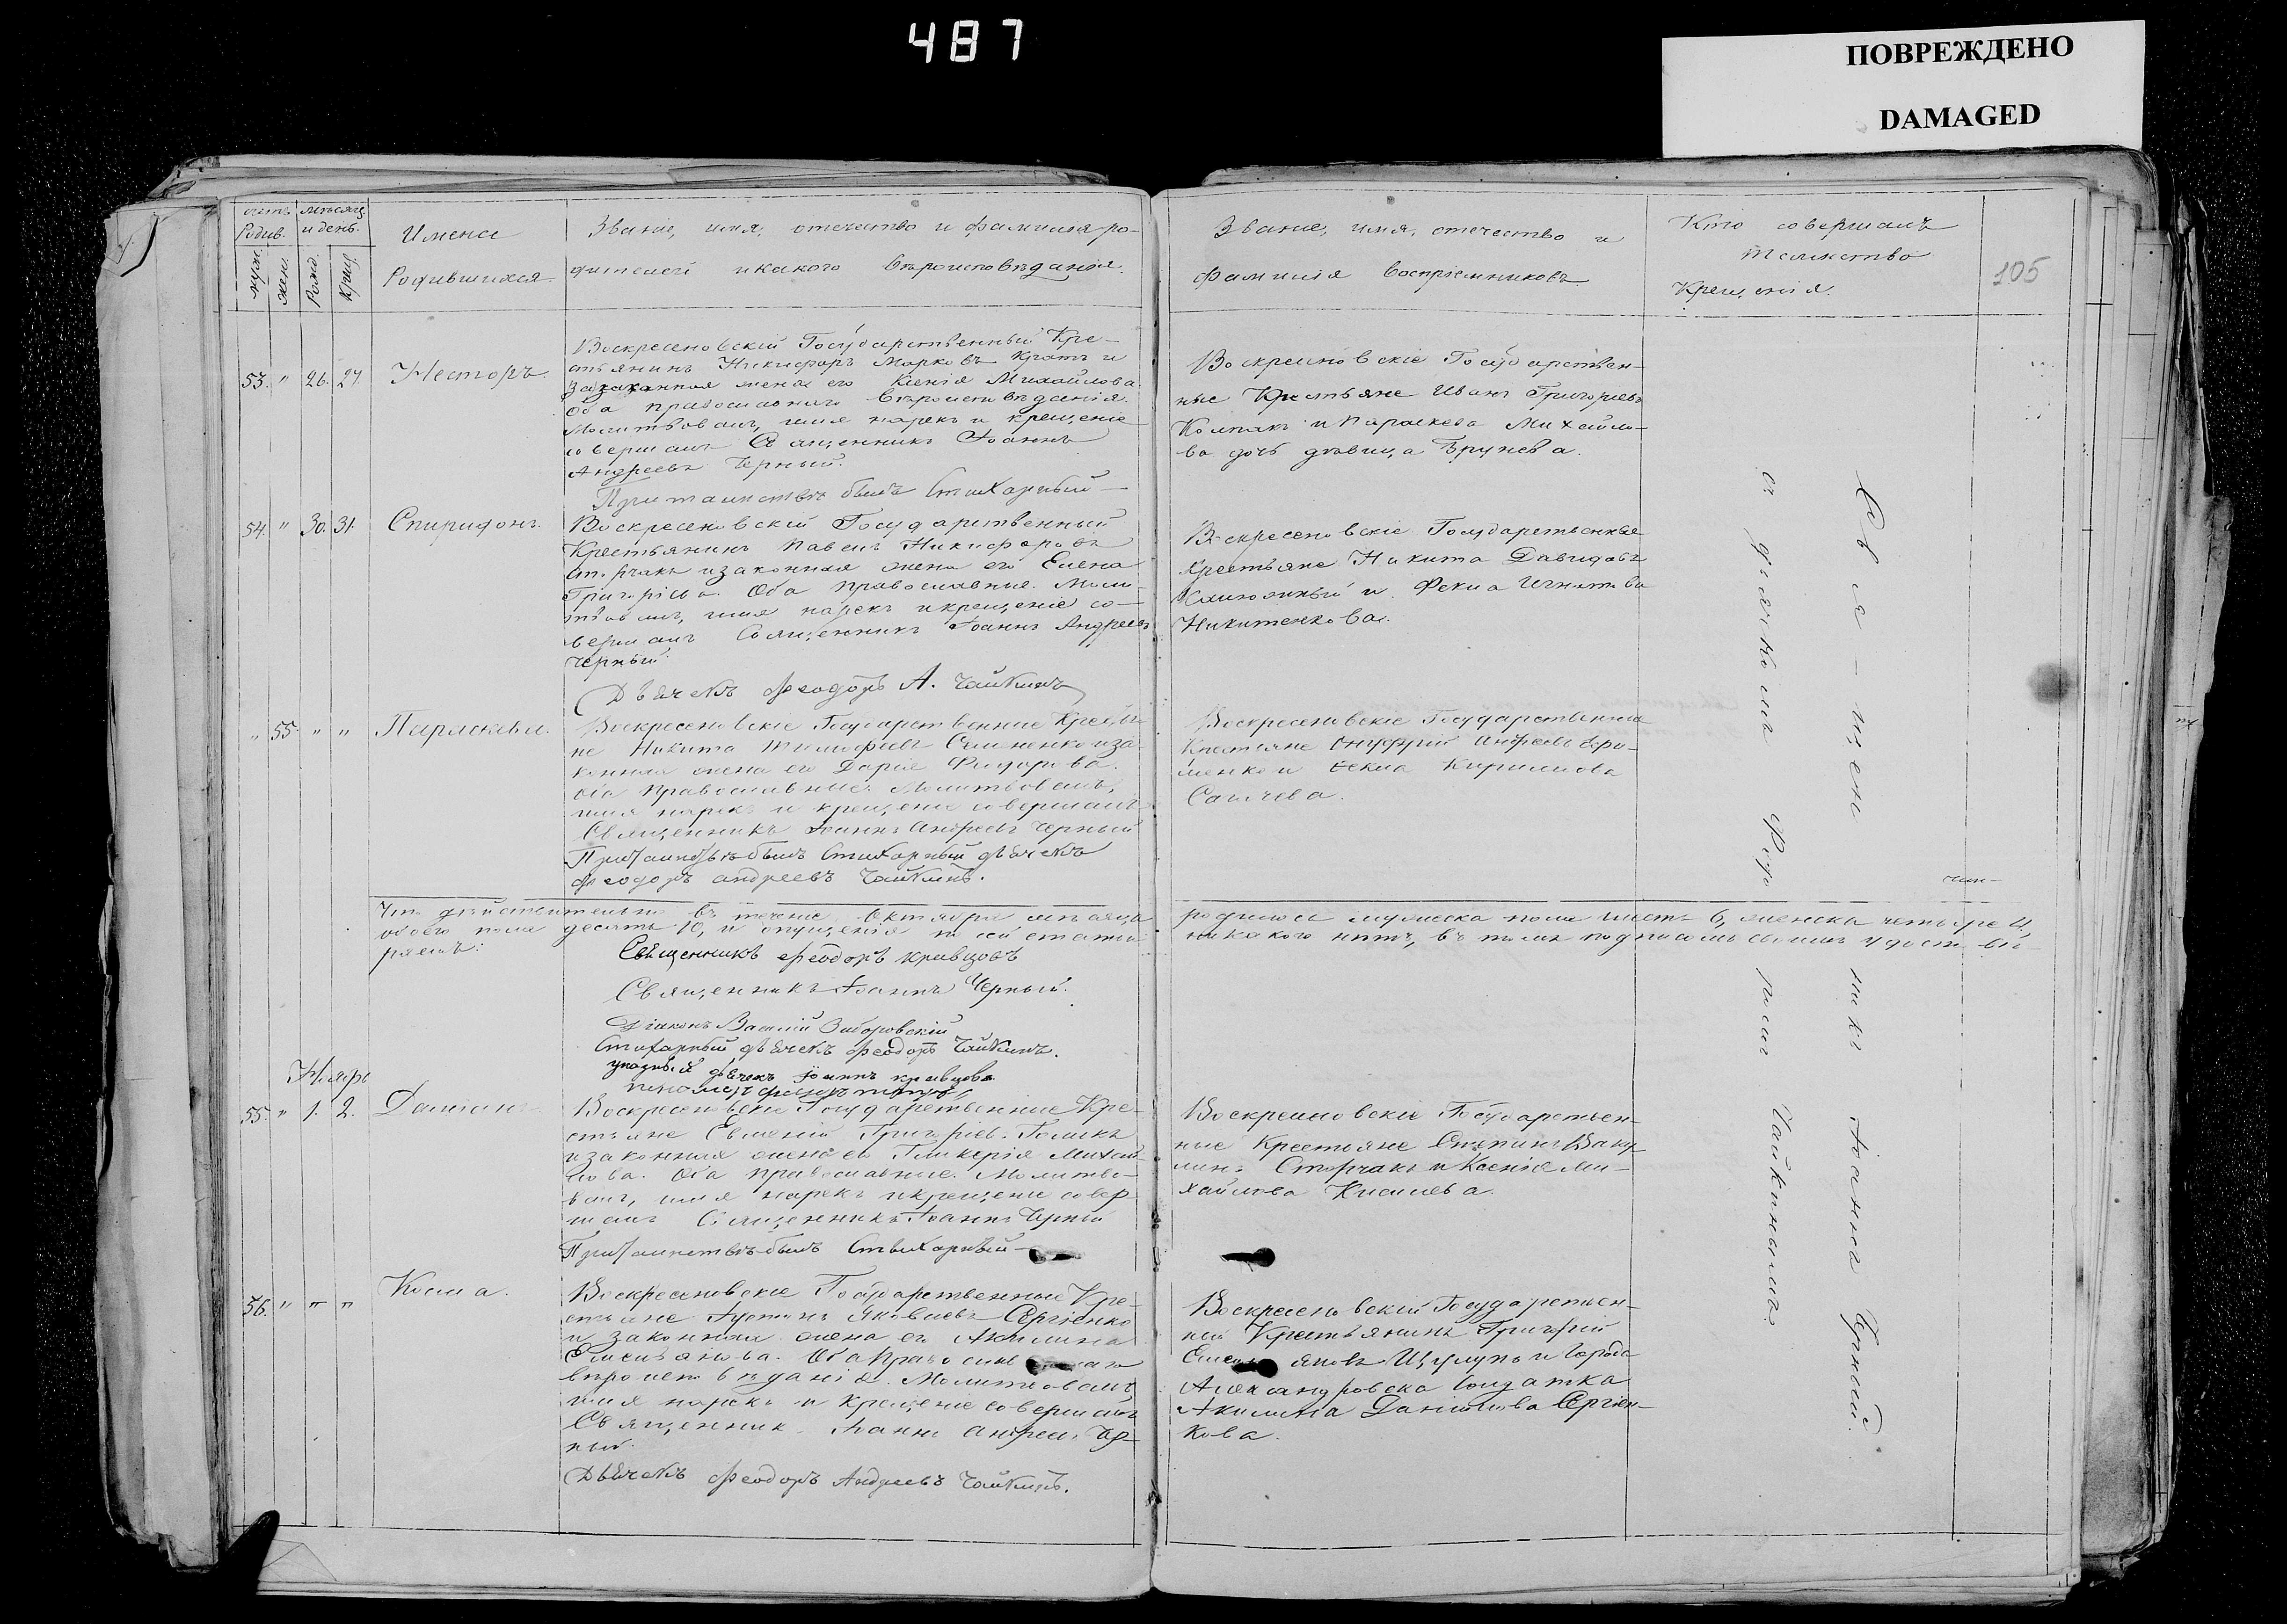 487
ПОВРЕЖДЕНО
DAMAGED
счетъ Родив.
муж.
жен.
мѣсяц и день.
Рожд.
Крщ.
Имена
Родившихся
Званіе, имя, отечество и фамилія ро-
дителей и какого вѣроисповѣданія.
Званіе, имя, отечество и
фамилія воспріемниковъ
Кто совершалъ
таинство
Крещенія.
105
53. " 26. 27. Несторъ.
Воскресеновскій Государственный Кре-
стьянинъ Никифоръ Марковъ и
законная жена его Ксенія Михайлова.
Оба православнаго вѣроисповѣданія.
Молитвовалъ, имя нарекъ и крещеніе
совершалъ Священникъ Іоаннъ
Андреевъ Черный.
При таинствѣ былъ Стихарный
Воскресеновскіе Государствен-
ные Крестьяне Иванъ Григорьевъ
Колпакъ и Параскева Михайло-
ва дочь дѣвица Брунева.
54. " 30. 31. Спиридонъ.
Воскресеновскій Государственный
Крестьянинъ Павелъ Никифоровъ
Сторчакъ и законная жена его Елена
Григорьева. Оба православные. Моли-
твовалъ, имя нарекъ и крещеніе со-
вершалъ Священникъ Іоаннъ Андреевъ
Черный.
Дьячекъ Феодоръ А. Чайкинъ
Воскресеновскіе Государственные
Крестьяне Никита Давидовъ
и Фекла Игнатова
Никитенкова.
" 55. " " Параскева.
Воскресеновскіе Государственные Крестья-
не Никита Тимофеевъ и зa-
конная жена его Дарія Федорова.
оба православные. Молитвовалъ,
имя нарекъ и крещеніе совершалъ
Священникъ Іоаннъ Андреевъ Черный
При таинствѣ былъ Стихарный дьячекъ
Феодоръ Андреевъ Чайкинъ.
Воскресеновскіе Государственные
Крестьяне Онуфрій Андреевъ
и Фекла Кирилова
Саичева.
Что дѣйствительно въ теченіе Октября мѣсяца родилось мужеска пола шесть 6, женска четыре 4,
обоего пола десять 10, и опущенія по сей статьи никакого нѣтъ, въ томъ подписомъ своимъ удостовѣ-
ряемъ:
Священникъ Феодоръ Кривцовъ
Священникъ Іоаннъ Черный.
Діаконъ Василій Зиборовскій
Стихарный дьячекъ Феодоръ Чайкинъ.
дьячекъ Іоаннъ Кривцовъ
Ноябрь
55. " 1. 2. Даміанъ
Воскресеновскіе Государственные Кре-
стьяне Евменій Григорьевъ Голикъ
и законная жена его Гликерія Михай-
лова. Оба православные. Молитво-
валъ, имя нарекъ и крещеніе совер-
шалъ Священникъ Іоаннъ Черный
При таинствѣ былъ Стихарный
Воскресеновскіе Государствен-
ные Крестьяне Стефанъ Ваку-
линъ Сторчакъ и Ксенія Ми-
хайлова Кисилева.
56. " " " Косма.
Воскресеновскіе Государственные Кре-
стьяне Яковлевъ Сергіенко
и законная жена его Акилина
Емельянова. Оба православнаго
вѣроисповѣданія. Молитвовалъ,
имя нарекъ и крещеніе совершалъ
Священник Іоаннъ Андреевъ Чер-
ный.
Дьячекъ Феодоръ Андреевъ Чайкинъ.
Воскресеновскій Государствен-
ный Крестьянинъ Григорій
Емельяновъ и города
Александровска солдатка
Акилина Данилова Сергіен-
кова.
Священникъ Іоаннъ Черный.
съ дьячкомъ Чайкинымъ.